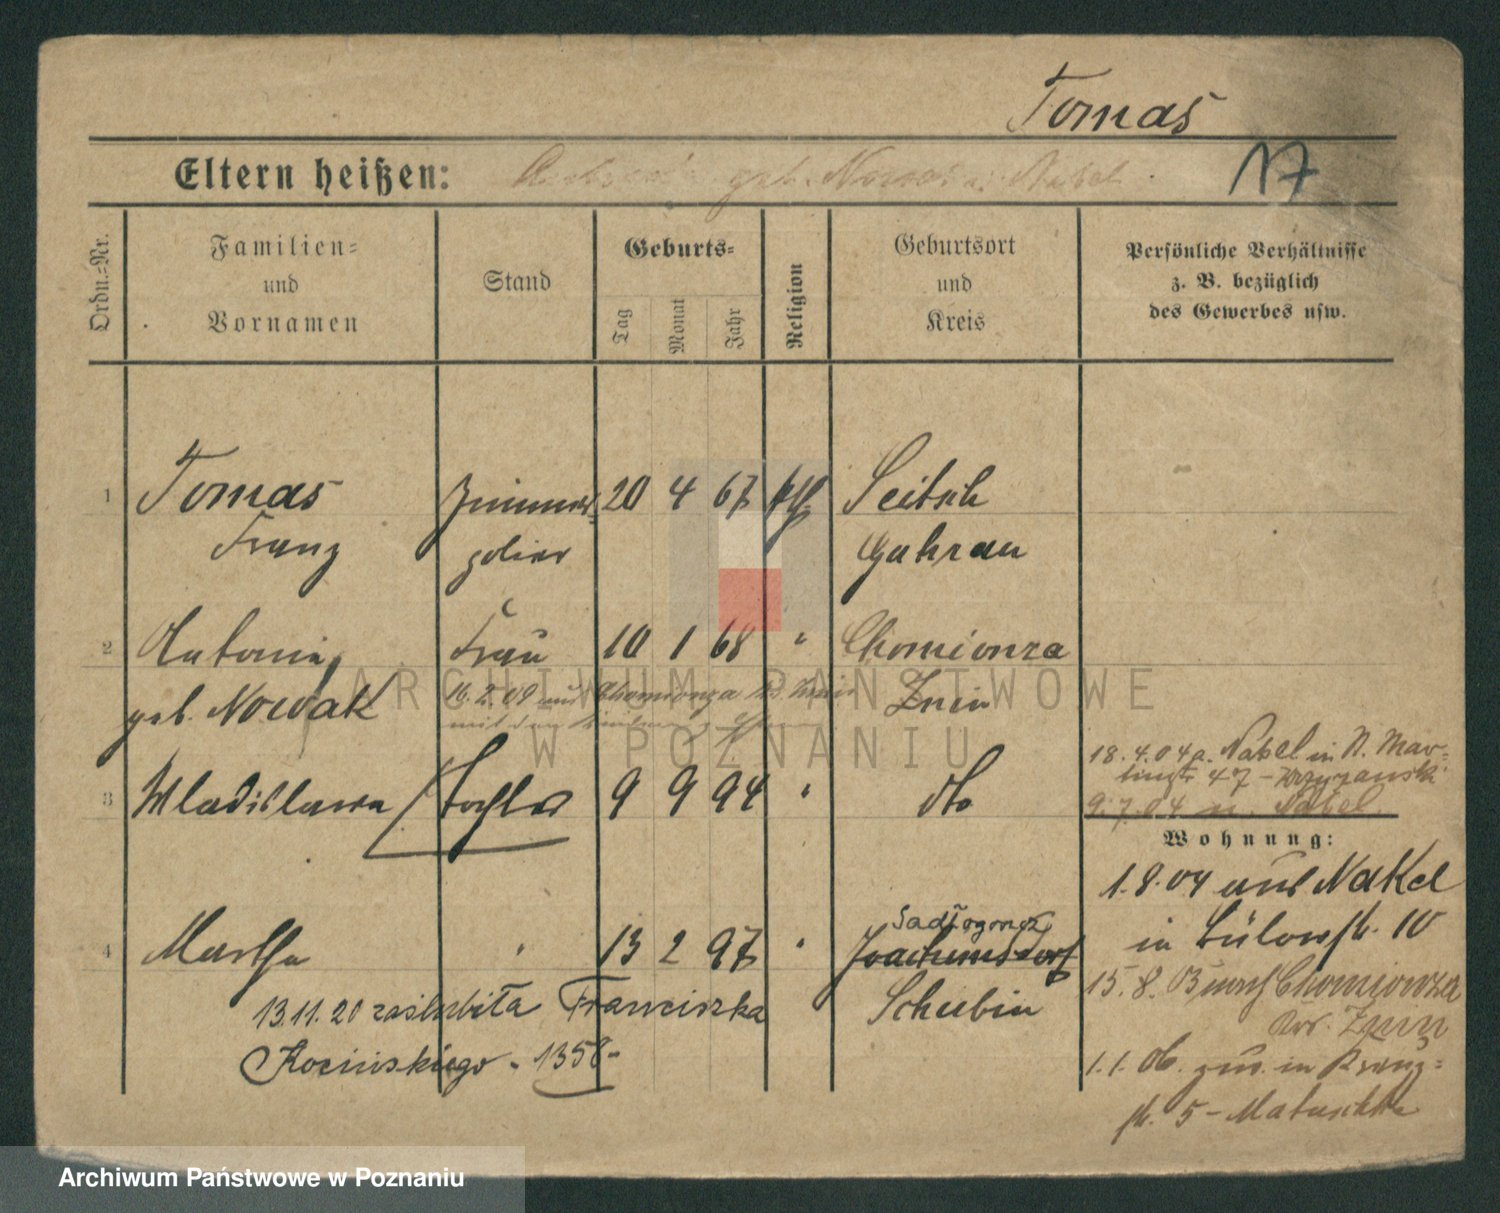 Tomas
Eltern heißen: geb. Nowak Nakel
17
Ordn.-Nr.
Familien-
und
Vornamen
Stand
Geburts-
Tag
Monat
Jahr
Religion
Geburtsort
und
Kreis
Persönliche Verhältnisse
z. B. bezüglich
des Gewerbes usw.
1 Tomas Zimmer- 20 4 67 kth Seitsch
Franz polier Guhrau
2 Antonia, Frau 10 1 68 " Chomionza
geb. Nowak Znin
16.2.09 aus Chomionza
mit den
3 Wladislawa Tochter 9 9 94 " dto
18.4.04 a. Nakel in N. Mar-
tinstr 47 -
9.7.04 n. Nakel
Wohnung:
1.8.04 aus Nakel
in Bülowstr. 10
4 Martha " 13 2 97 " Sadłogoszcz
Joachimsdorf
Schubin
13.11.20 zaślubiła Franciszka
Kocińskiego - 1358 -
15.8. nach Chomionza
Krs. Znin
1.1.06. zur. in Kreuz-
str. 5 - Matuschke
ARCHIWUM PAŃSTWOWE
W POZNANIU
Archiwum Państwowe w Poznaniu